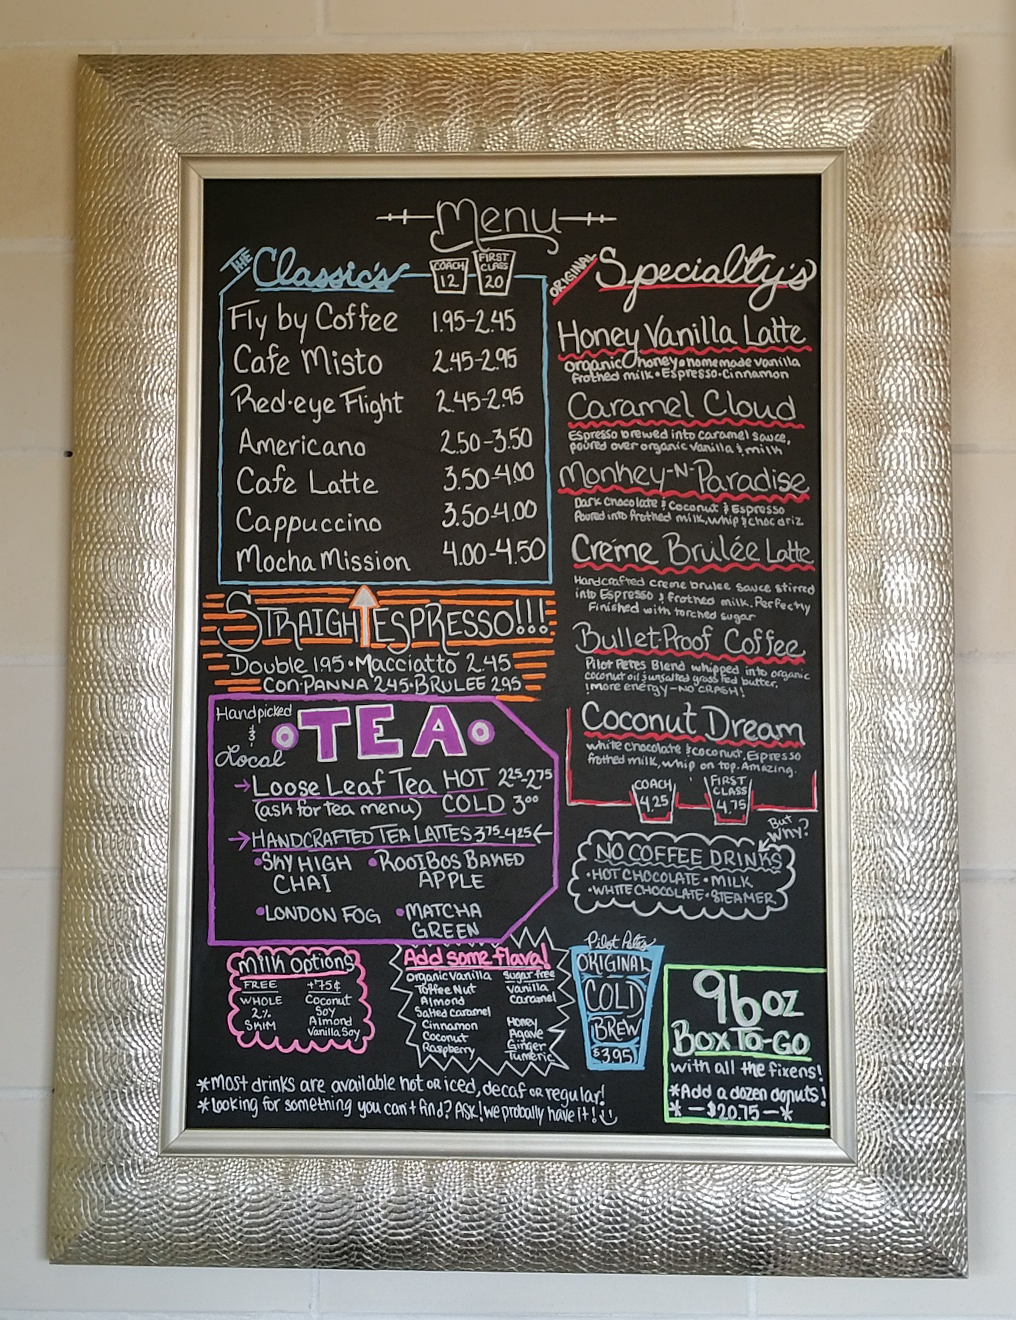 Menu
THE Classic's
COACH 12
FIRST CLASS 20
Fly by Coffee 1.95-2.45
Cafe Misto 2.45-2.95
Red-eye Flight 2.45-2.95
Americano 2.50-3.50
Cafe Latte 3.50-4.00
Cappuccino 3.50-4.00
Mocha Mission 4.00-4.50
STRAIGHT ESPRESSO!!!
Double 1.95 • Macciatto 2.45
CON-PANNA 2.45 • BRULEE 2.95
Handpicked & Local
TEA
Loose Leaf Tea HOT 2.25-2.75
(ask for tea menu) COLD 3.00
HANDCRAFTED TEA LATTES 3.75-4.25
• SKY HIGH CHAI
• ROOIBOS BAKED APPLE
• LONDON FOG
• MATCHA GREEN
Milk Options
FREE
WHOLE
2%
SKIM
+75¢
Coconut
Soy
Almond
Vanilla Soy
Add some flava!
Organic Vanilla
Toffee Nut
Almond
Salted Caramel
Cinnamon
Coconut
Raspberry
Sugar free
Vanilla
Caramel
Honey
Agave
Ginger
Tumeric
ORIGINAL Specialty's
Honey Vanilla Latte
organic honey • homemade vanilla
frothed milk • Espresso • Cinnamon
Caramel Cloud
Espresso brewed into caramel sauce,
poured over organic vanilla & milk
Monkey-N-Paradise
Dark Chocolate & Coconut & Espresso
Poured into frothed milk, whip & choc driz
Créme Brulée Latte
Handcrafted creme brulee sauce stirred
into Espresso & frothed milk. Perfectly
Finished with torched sugar
Bullet-Proof Coffee
Pilot Petes Blend whipped into organic
coconut oil & unsalted grass fed butter,
! more energy - NO CRASH!
Coconut Dream
white chocolate & coconut, Espresso
frothed milk, whip on top. Amazing.
COACH 4.25
FIRST CLASS 4.75
But Why?
NO COFFEE DRINKS
• HOT CHOCOLATE • MILK
• WHITE CHOCOLATE • STEAMER
Pilot Petes
ORIGINAL
COLD
BREW
$3.95
96oz
Box To-Go
with all the fixens!
*Add a dozen donuts!
* - $20.75 - *
*Most drinks are available hot or iced, decaf or regular!
*Looking for something you can't find? Ask! We probably have it!